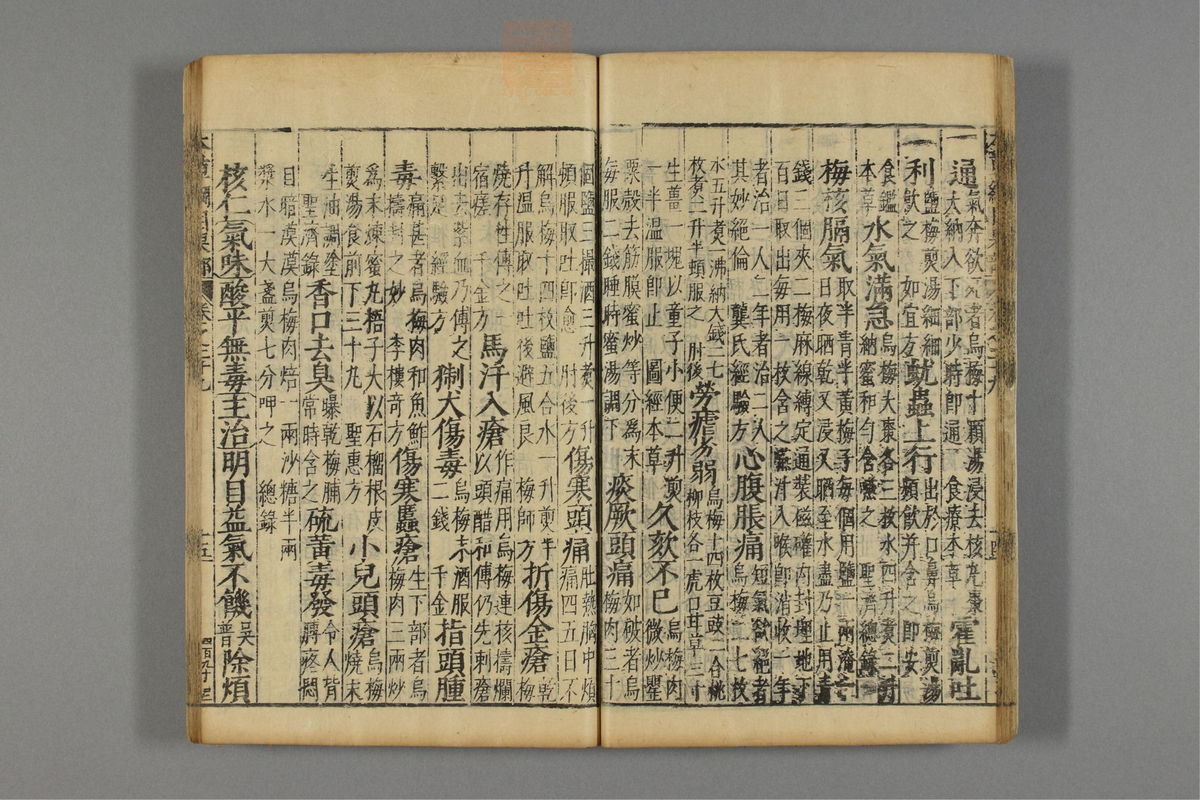 通氣奔欲死者烏梅十顆湯浸去核丸棗
大納入下部少時即通 食療本草 霍亂吐
利鹽梅煎湯細細
飲之 如宜方 蚘蟲上行出於口鼻烏梅煎湯
頻飲并含之即安
食鑑
本草 水氣滿急烏梅大棗各三枚水四升煮二升
納蜜和勻含嚥之 聖濟總錄
梅核膈氣取半青半黃梅子每個用鹽一兩淹一
日夜晒乾又浸又晒至水盡乃止用青
錢三個夾二梅麻線縛定通裝磁礶內封埋地下
百日取出每用一枚含之嚥汁入喉即消收一年
者治一人二年者治二人
其妙絕倫 龔氏經驗方 心腹脹痛短氣欲絕者
烏梅二七枚
水五升煮一沸納大錢二七
枚煮二升半頓服之 肘後 勞瘧劣弱烏梅十四枚豆豉二合桃
柳枝各一虎口甘草三寸
生薑一塊以童子小便二升煎
一半溫服即止 圖經本草 久欬不已烏梅肉
微炒罌
粟殼去筋膜蜜炒等分為末
每服二錢睡時蜜湯調下 痰厥頭痛如破者烏
梅肉三十
個鹽三撮酒三升煮一升
頓服取吐即愈 肘後方 傷寒頭痛壯熱胸中煩
痛四五日不
解烏梅十四枚鹽五合水一升煎半
升溫服取吐吐後避風良 梅師方 折傷金瘡乾
梅
燒存性傅之一
宿瘥 千金方 馬汗入瘡作痛用烏梅連核擣爛
以頭醋和傅仍先刺瘡
出去紫血乃傅之
繫定 經驗方 猘犬傷毒烏梅末酒服
二錢 千金 指頭腫
毒痛甚者烏梅肉和魚鮓
擣封之妙 李樓奇方 傷寒䘌瘡生下部者烏
梅肉三兩炒
為末煉蜜丸梧子大以石榴根皮
煎湯食前下三十丸 聖惠方 小兒頭瘡烏梅
燒末
生油調塗
聖濟錄 香口去臭曝乾梅脯
常時含之 硫黃毒發令人背
膊疼悶
目暗漠漠烏梅肉焙一兩沙糖半兩
漿水一大盞煎七分呷之 總錄
核仁氣味酸平無毒主治明目益氣不饑吳
普 除煩